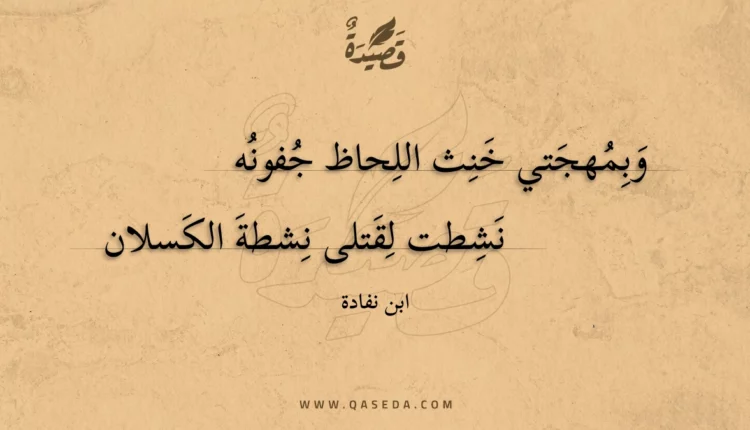 قَصِيْدَةٌ
وَبِمُهجَتي خَنِث اللِحاظ جُفونُه
نَشِطت لِقَتلى نِشطةَ الكَسلان
ابن نفادة
WWW.QASEDA.COM